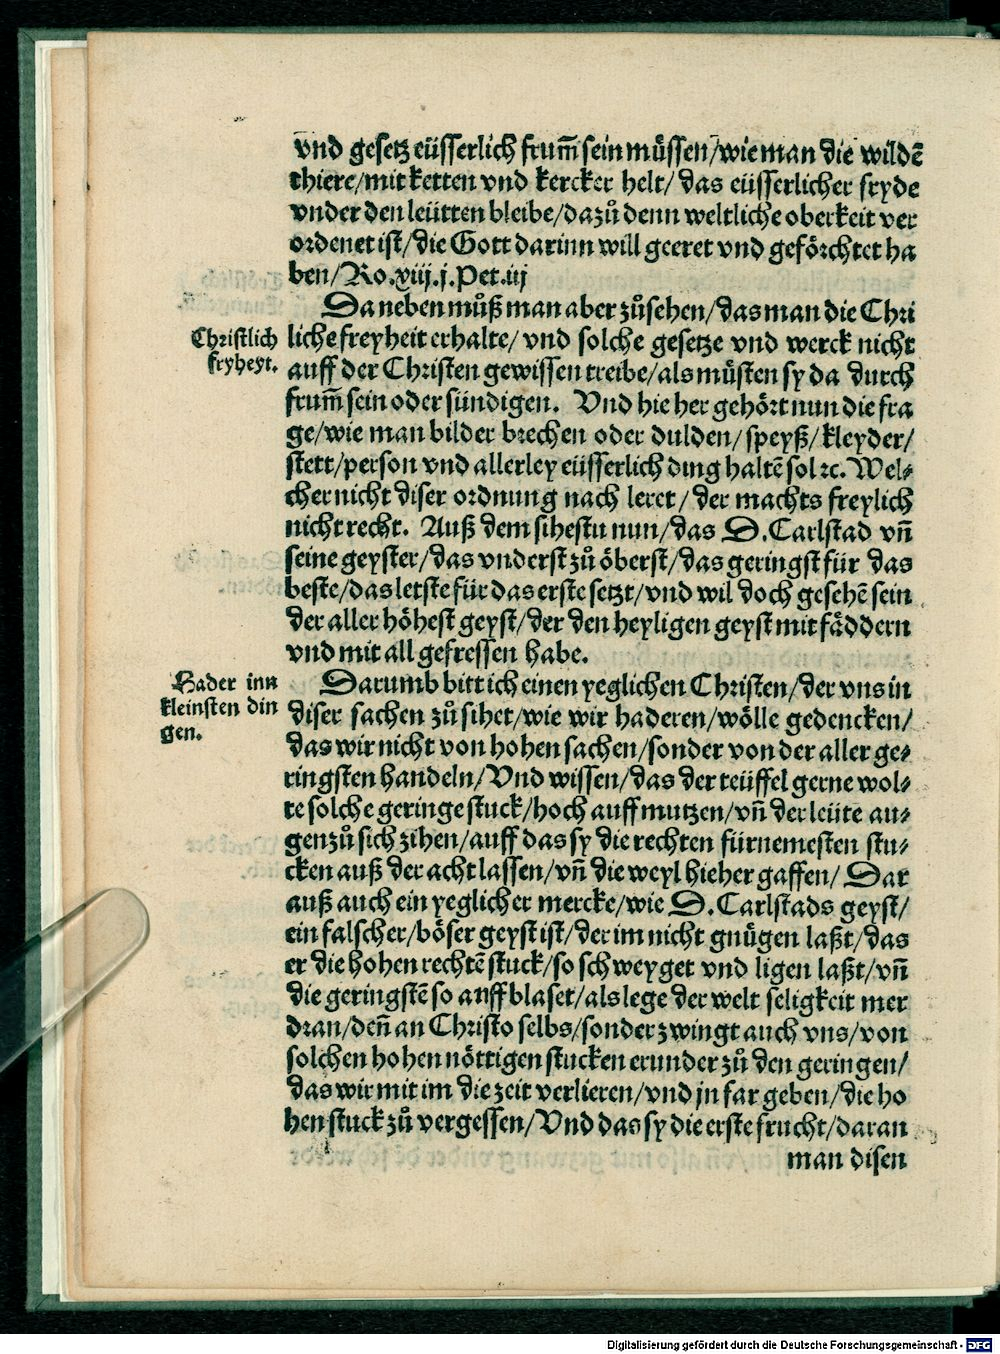 vnd gesetz eüsserlich frum̃ sein müssen/wie man die wildē
thiere/mit ketten vnd kercker helt/ das eüsserlicher fryde
vnder den leütten bleibe/dazů denn weltliche oberkeit ver
ordenet ist/die Gott darinn will geeret vnd geförchtet ha
ben/Ro.xiij.j.Pet.iij
Daneben můß man aber zůsehen/das man die Chri
Christlich
fryheyt.
liche freyheit erhalte/ vnd solche gesetze vnd werck nicht
auff der Christen gewissen treibe/als müsten sy da durch
frum̃ sein oder sündigen. Vnd hie her gehört nun die fra
ge/wie man bilder brechen oder dulden/speyß/kleyder/
stett/person vnd allerley eüsserlich ding haltē sol ꝛc. Wel⸗
cher nicht diser ordnung nach leret/der machts freylich
nicht recht. Auß dem sihestu nun/das D.Carlstad vñ
seine geyster/das vnderst zů öberst/das geringst für das
beste/das letste für das erste setzt/vnd wil doch gesehē sein
der aller höhest geyst/der den heyligen geyst mit fäddern
vnd mit all gefressen habe.
Hader inn
kleinsten din
gen.
Darumb bitt ich einen yeglichen Christen/der vns in
diser sachen zů sihet/wie wir haderen/wölle gedencken/
das wir nicht von hohen sachen/sonder von der aller ge⸗
ringsten handeln/Vnd wissen/das der teüffel gerne wol⸗
te solche geringe stuck/hoch auff mutzen/vñ der leüte au⸗
gen zů sich zihen/auff das sy die rechten fürnemesten stu⸗
cken auß der acht lassen/vñ die weyl hieher gaffen/ Dar
auß auch ein yeglicher mercke/wie D.Carlstads geyst/
ein falscher/böser geyst ist/der im nicht gnügen laßt/das
er die hohen rechtē stuck/so schweyget vnd ligen laßt/vñ
die geringstē so auffblaset/als lege der welt seligkeit mer
dran/deñ an Christo selbs/sonder zwingt auch vns/von
solchen hohen nöttigen stucken erunder zů den geringen/
das wir mit im die zeit verlieren/vnd jn far geben/die ho
hen stuck zů vergessen/Vnd das sy die erste frucht/daran
man disen
Digitalisierung gefördert durch die Deutsche Forschungsgemeinschaft - DFG